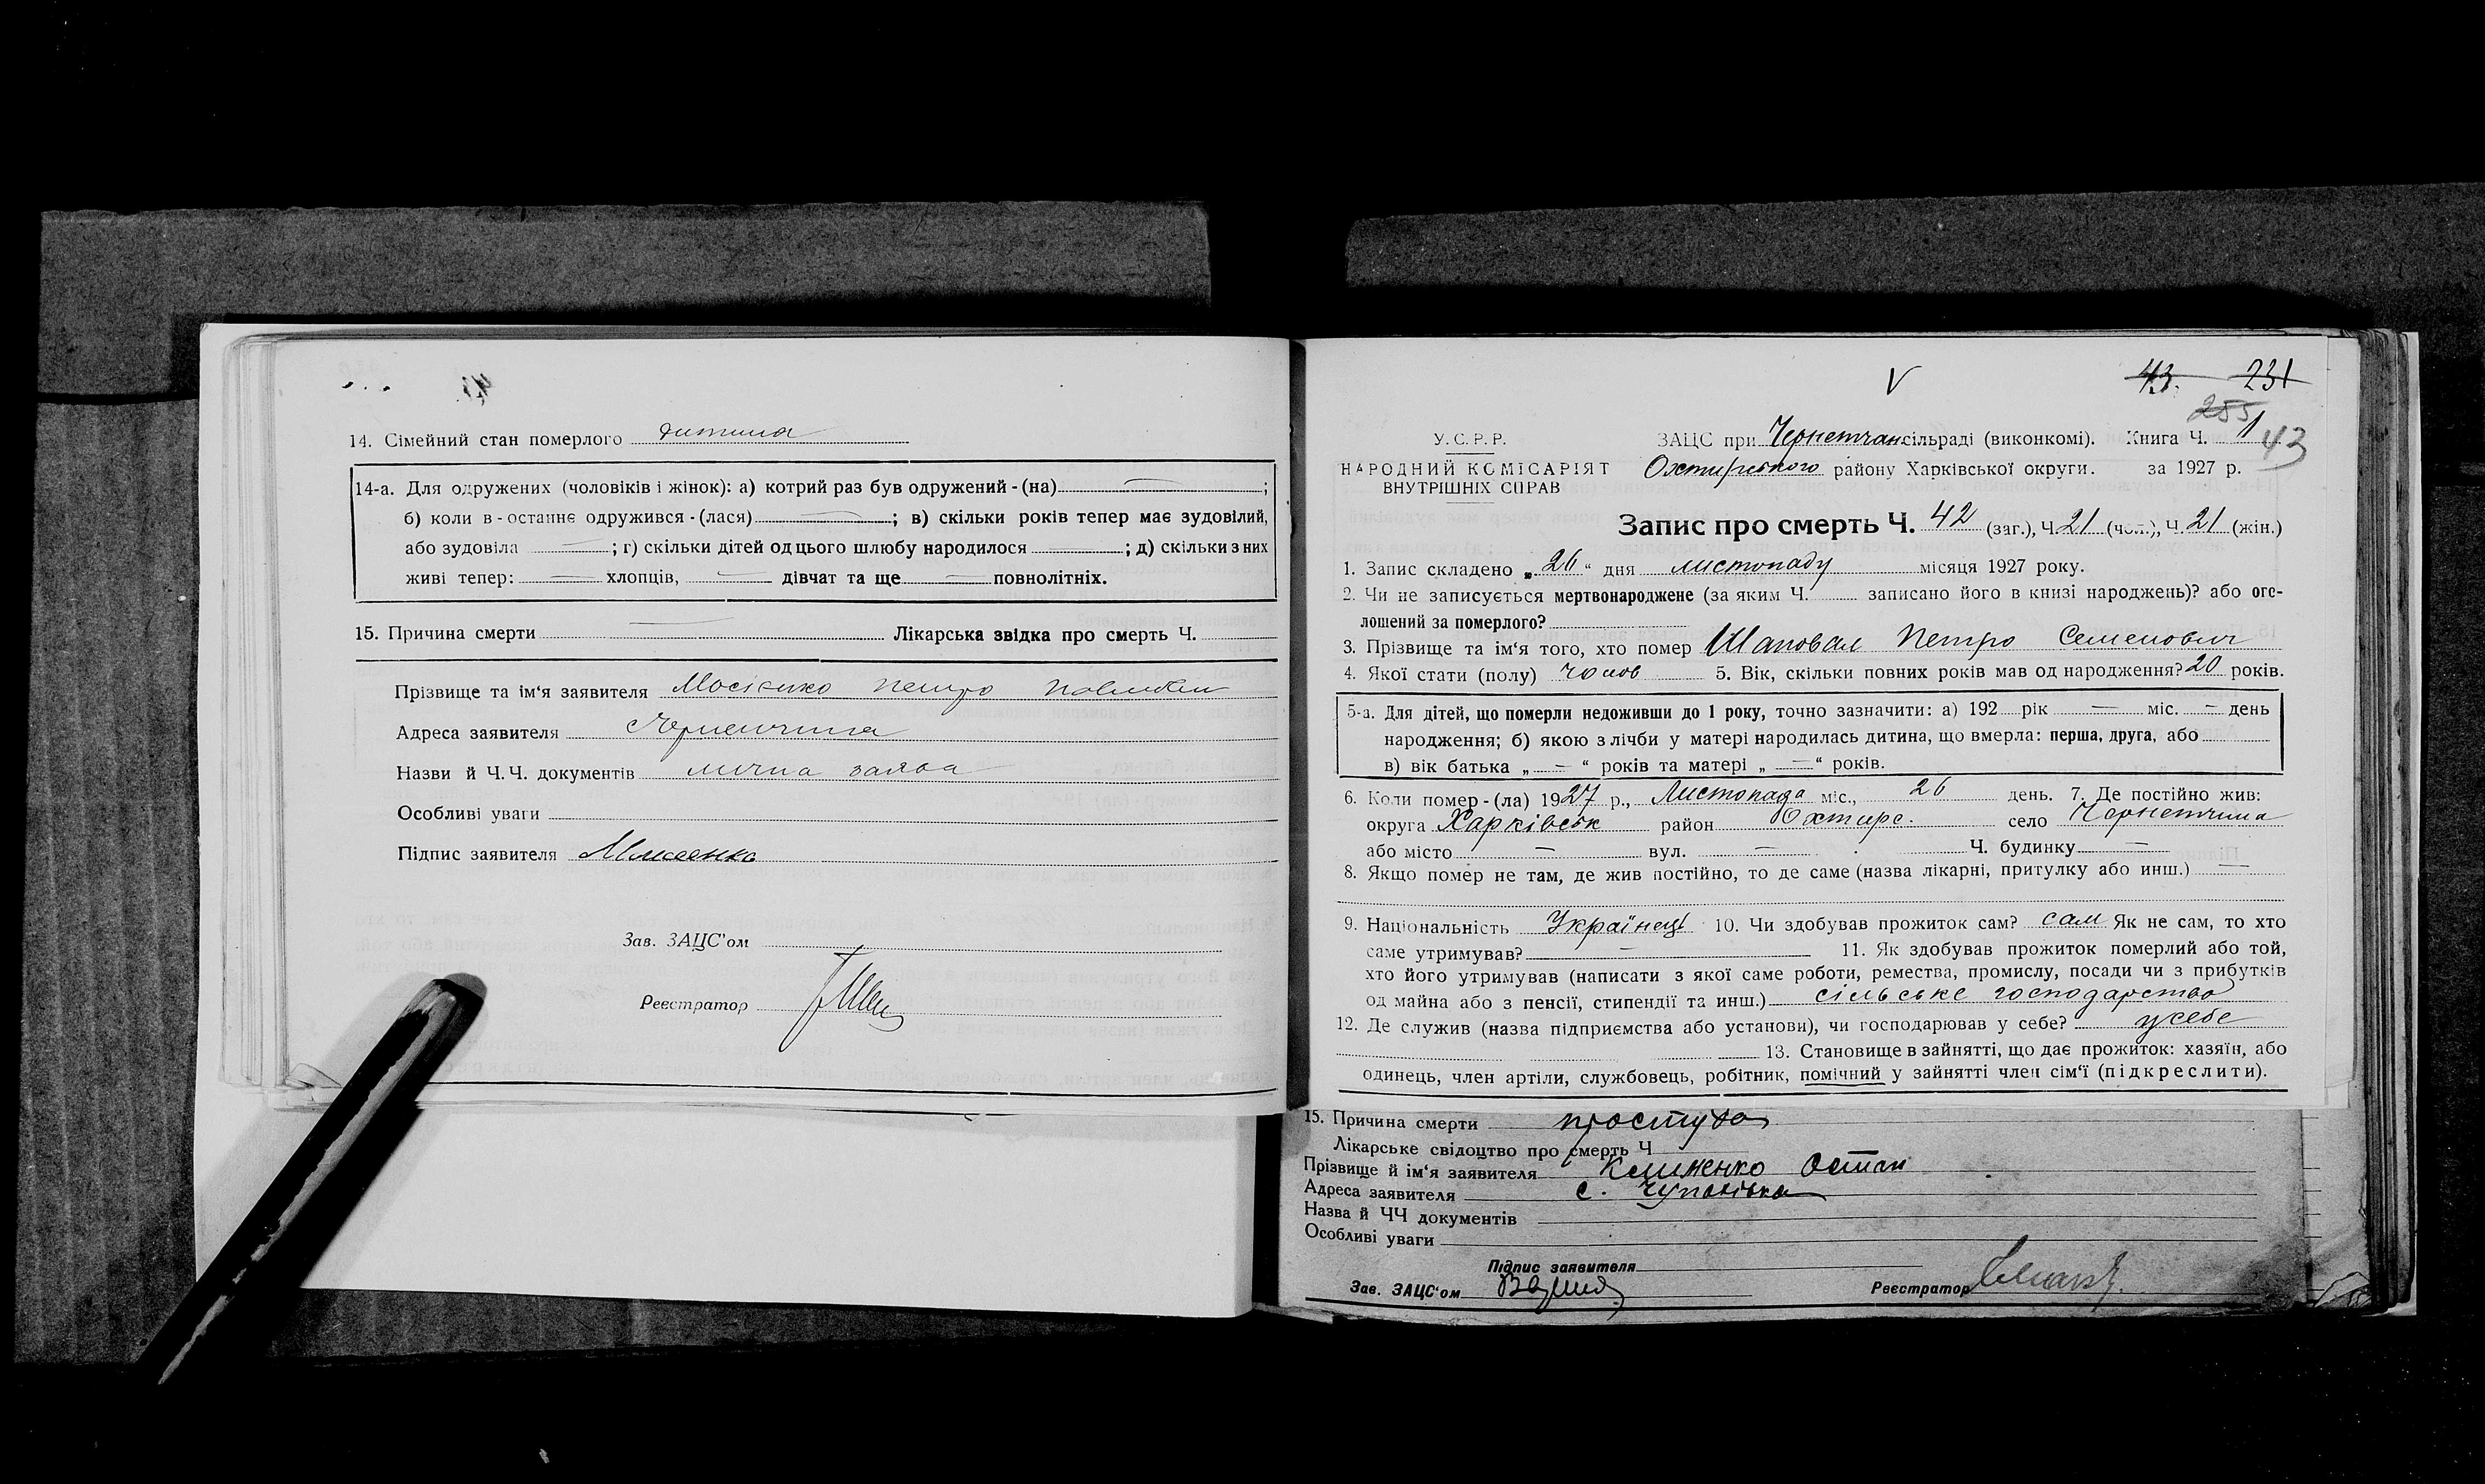 14. Сімейний стан померлого дитина
14-а. Для одружених (чоловіків і жінок): а) котрий раз був одружений-(на) — ;
б) коли в-останнє одружився-(лася) — ; в) скільки років тепер має зудовілий,
або зудовіла — ; г) скільки дітей од цього шлюбу народилося — ; д) скільки з них
живі тепер: — хлопців, — дівчат та ще — повнолітніх.
15. Причина смерти — Лікарська звідка про смерть Ч.
Прізвище та ім‘я заявителя Петро
Адреса заявителя
Назви й Ч.Ч. документів лична заява
Особливі уваги
Підпис заявителя
Зав. ЗАЦС’ом
Реєстратор
V
43. 231
255
43
У.С.Р.Р.
НАРОДНИЙ КОМІСАРІЯТ
ВНУТРІШНІХ СПРАВ
ЗАЦС при Чернетчан сільраді (виконкомі). Книга Ч. 1
Охтирського району Харківської округи. за 1927 р.
Запис про смерть Ч. 42 (заг.), Ч. 21 (чол.), Ч. 21 (жін.)
1. Запис складено „26“ дня листопаду місяця 1927 року.
2. Чи не записується мертвонароджене (за яким Ч. записано його в книзі народжень)? або ого-
лошений за померлого?
3. Прізвище та ім‘я того, хто помер Шаповал Петро Семенович
4. Якої стати (полу) чолов 5. Вік, скільки повних років мав од народження? 20 років.
5-а. Для дітей, що померли недоживши до 1 року, точно зазначити: а) 192 рік — міс. — день
народження; б) якою з лічби у матері народилась дитина, що вмерла: перша, друга, або
в) вік батька „ — “ років та матері „ — “ років.
6. Коли помер-(ла) 1927 р., Листопада міс., 26 день. 7. Де постійно жив:
округа Харківськ район Охтирс. село Чернетчина
або місто — вул. — Ч. будинку —
8. Якщо помер не там, де жив постійно, то де саме (назва лікарні, притулку або инш.) —
9. Національність Українец 10. Чи здобував прожиток сам? сам Як не сам, то хто
саме утримував? — 11. Як здобував прожиток померлий або той,
хто його утримував (написати з якої саме роботи, ремества, промислу, посади чи з прибутків
од майна або з пенсії, стипендії та инш.) сільське господарство
12. Де служив (назва підприємства або установи), чи господарював у себе? у себе
13. Становище в зайнятті, що дає прожиток: хазяїн, або
одинець, член артіли, службовець, робітник, помічний у зайнятті член сім‘ї (підкреслити).
15. Причина смерти простуда
Лікарське свідоцтво про смерть Ч
Прізвище й ім‘я заявителя Клименко Остап
Адреса заявителя с. Чупахівка
Назва й ЧЧ документів
Особливі уваги
Підпис заявителя
Зав. ЗАЦС‘ом
Реєстратор